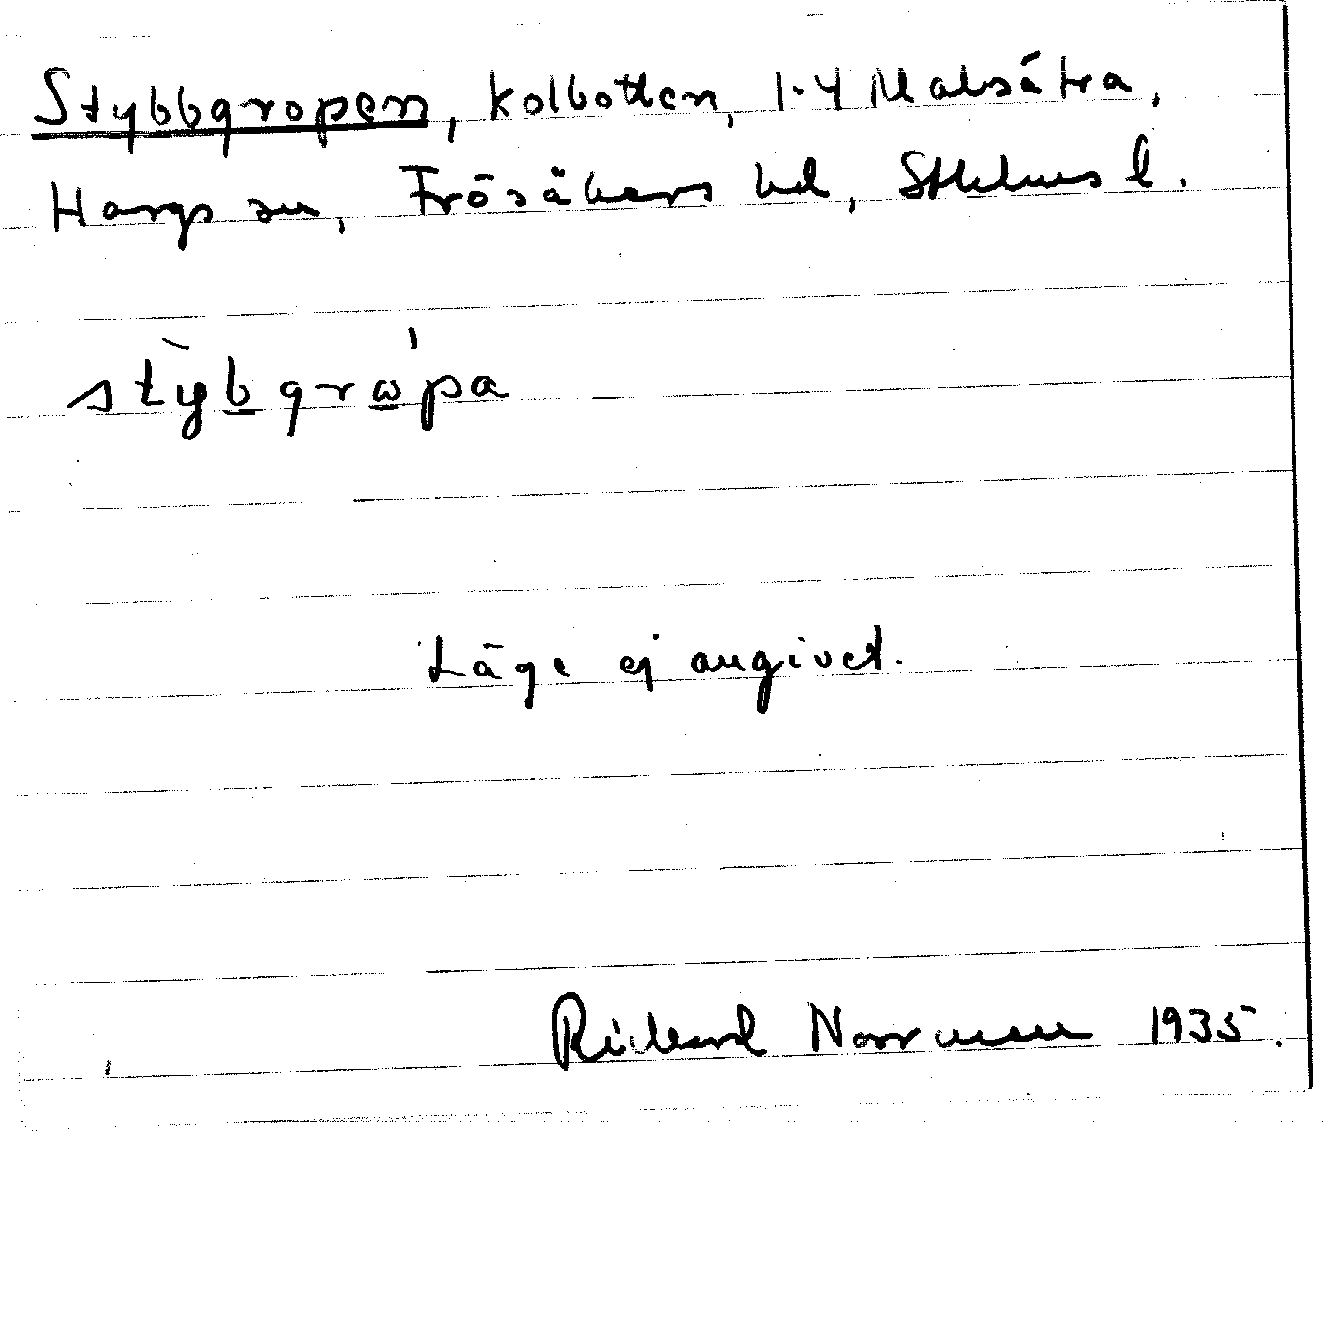 Stybbgropen, kolbotten, 1-4 Malsätra,
Hargs sn, Frösåkers hd, Sthlms l.
stỳb̲grώ̲pa
Läge ej angivet.
Richard Norrman 1935.